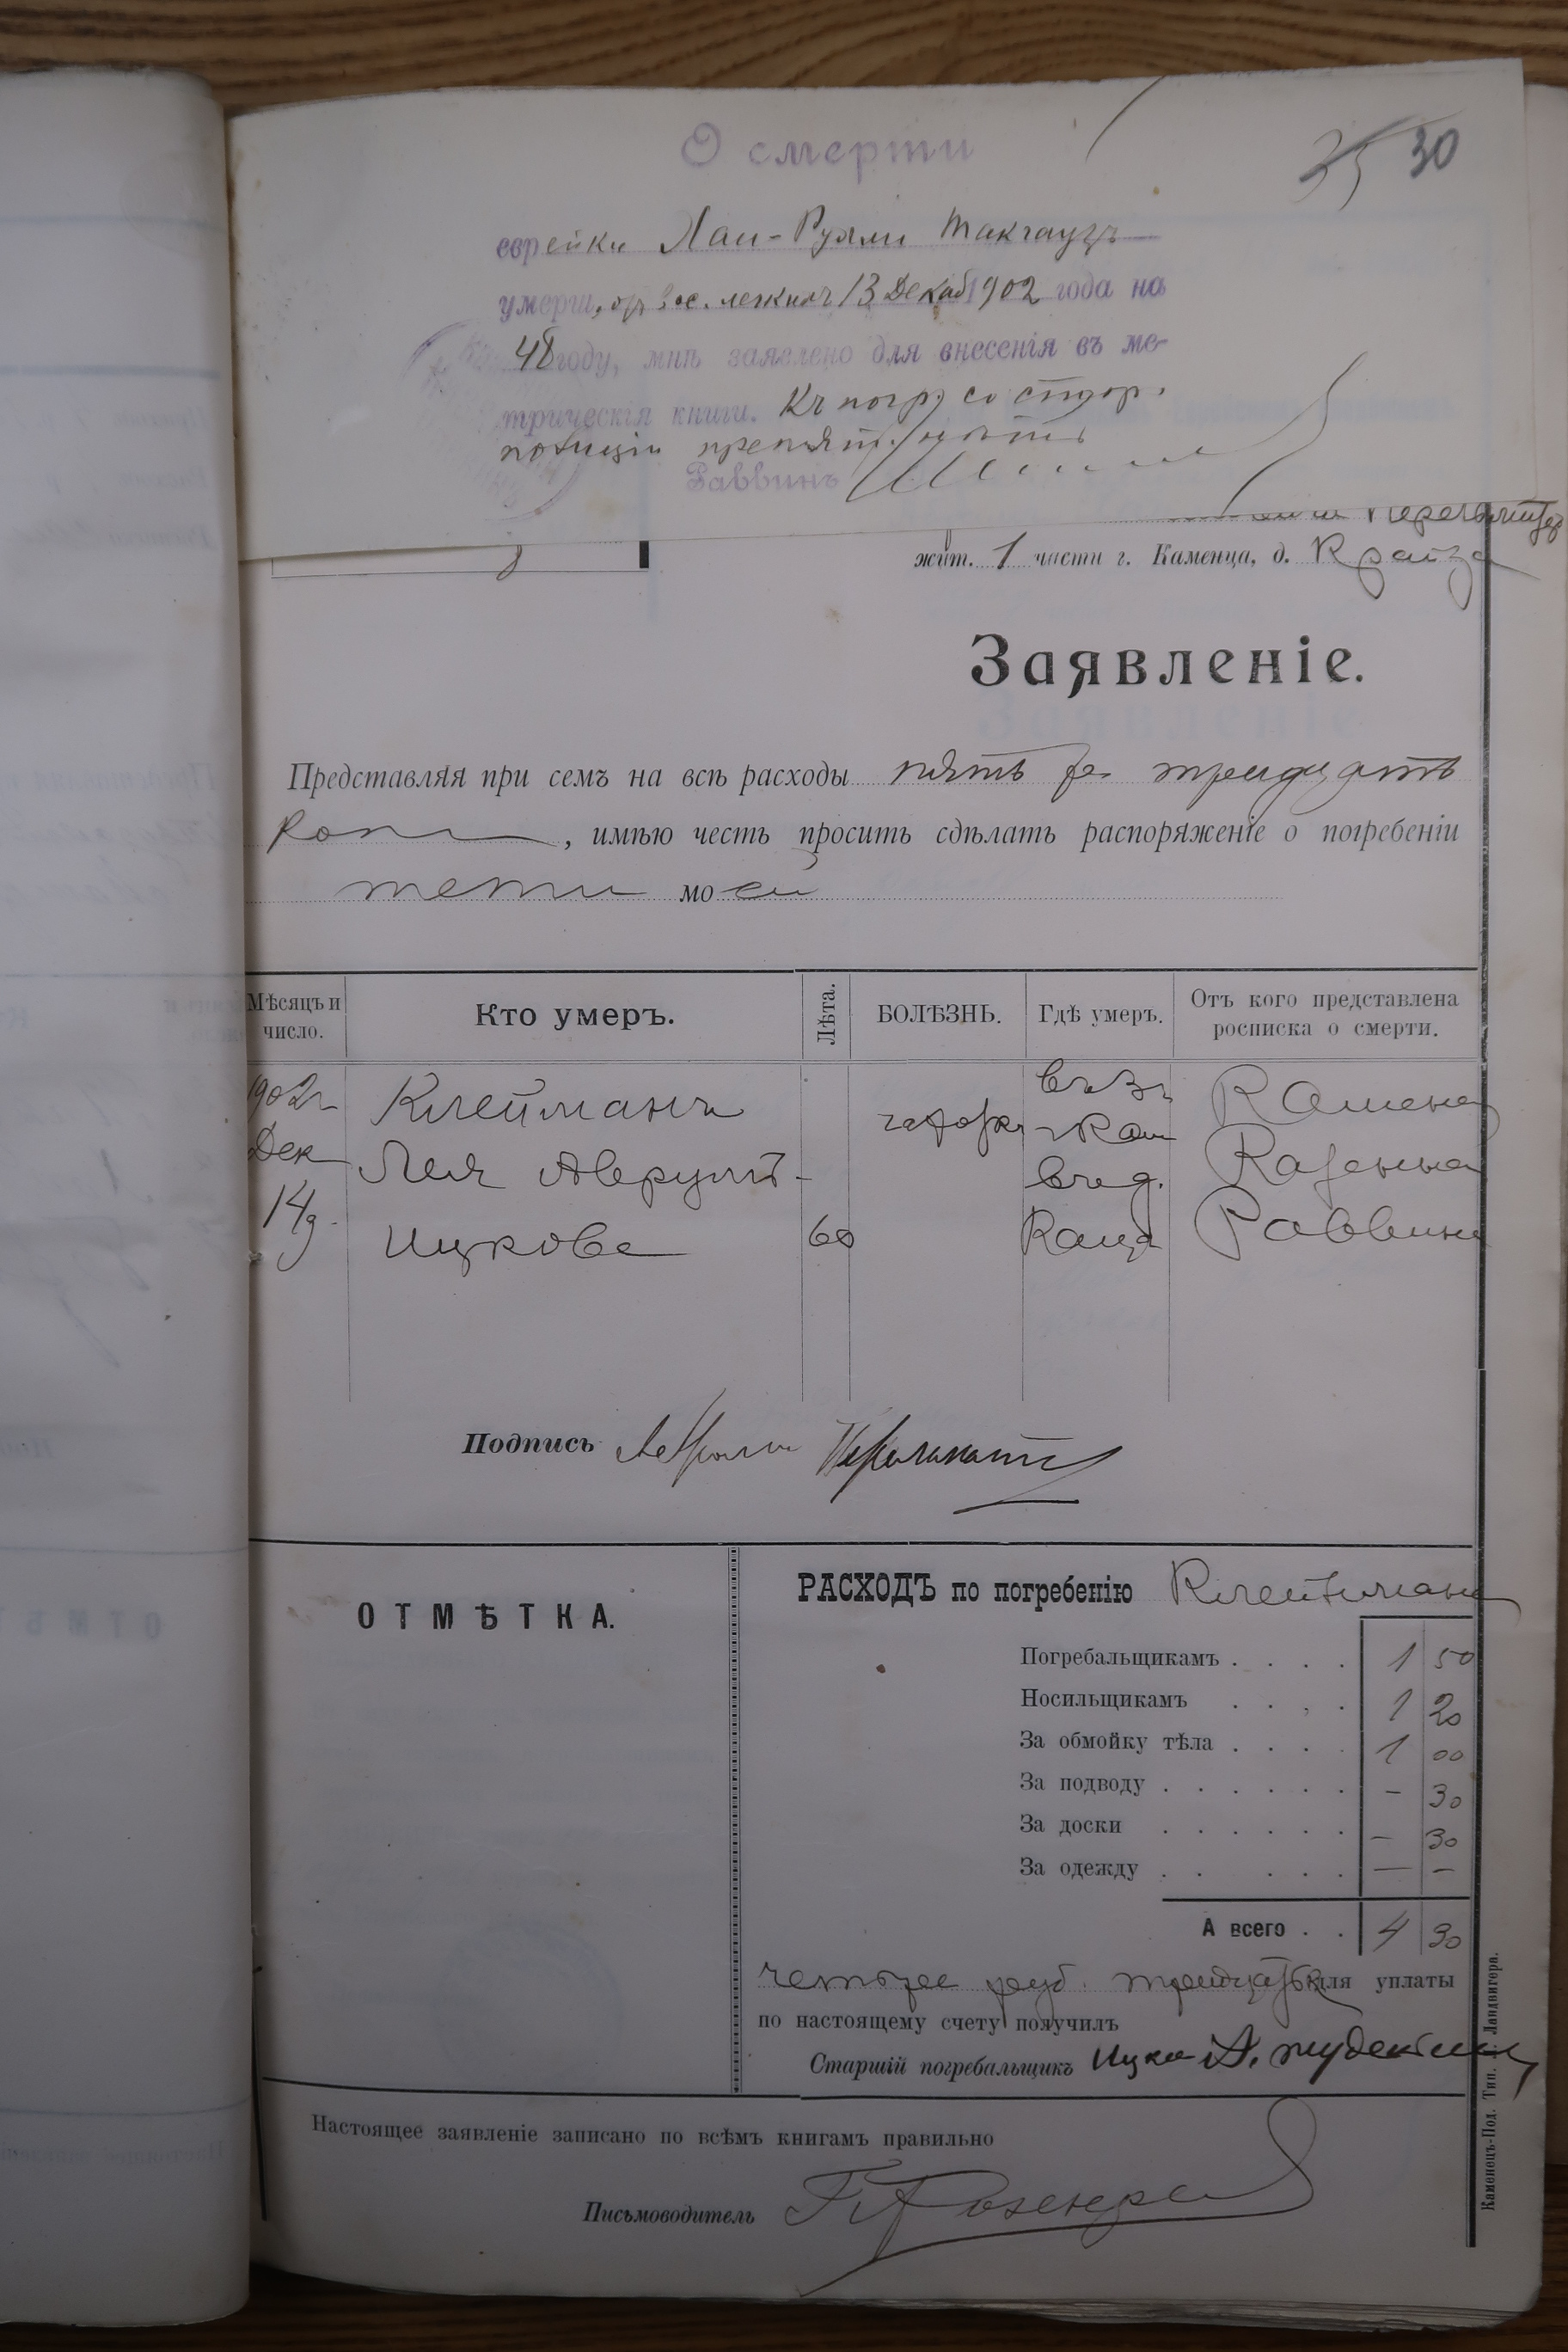 О смерти
35 30
еврейки Хаи-Рухли
умерш. от вос. легких 13 Декаб 1902 года на
48 году, мнѣ заявлено для внесенія въ ме-
трическія книги. Къ погр со стор.
полиціи препят. нѣтъ
Раввинъ
жит. 1 части г. Каменца, д. Крайза
Заявленіе.
Представляя при семъ на всѣ расходы пять р. тридцать
коп , имѣю честь просить сдѣлать распоряженіе о погребеніи
тети моей
Мѣсяцъ и число. Кто умеръ. Лѣта. БОЛѢЗНЬ. Гдѣ умеръ. Отъ кого представлена росписка о смерти.
902 г Клейманъ Каменец
Дек Лея Аврумъ- Казенна
14 д Ицкова 60 Раввина
Подпись
ОТМѢТКА.
РАСХОДЪ по погребенію Клейман
Погребальщикамъ . . . . 1 50
Носильщикамъ . . . . 1 20
За обмойку тѣла . . . . 1 00
За подводу . . . . . . - 30
За доски . . . . . . - 30
За одежду . . . . . — –
А всего . . 4 30
четыре руб. тридцать к для уплаты
по настоящему счету получилъ
Старшій погребальщикъ Ицко
Настоящее заявленіе записано по всѣмъ книгамъ правильно
Письмоводитель
Каменецъ-Под. Тип. Ландвигера.